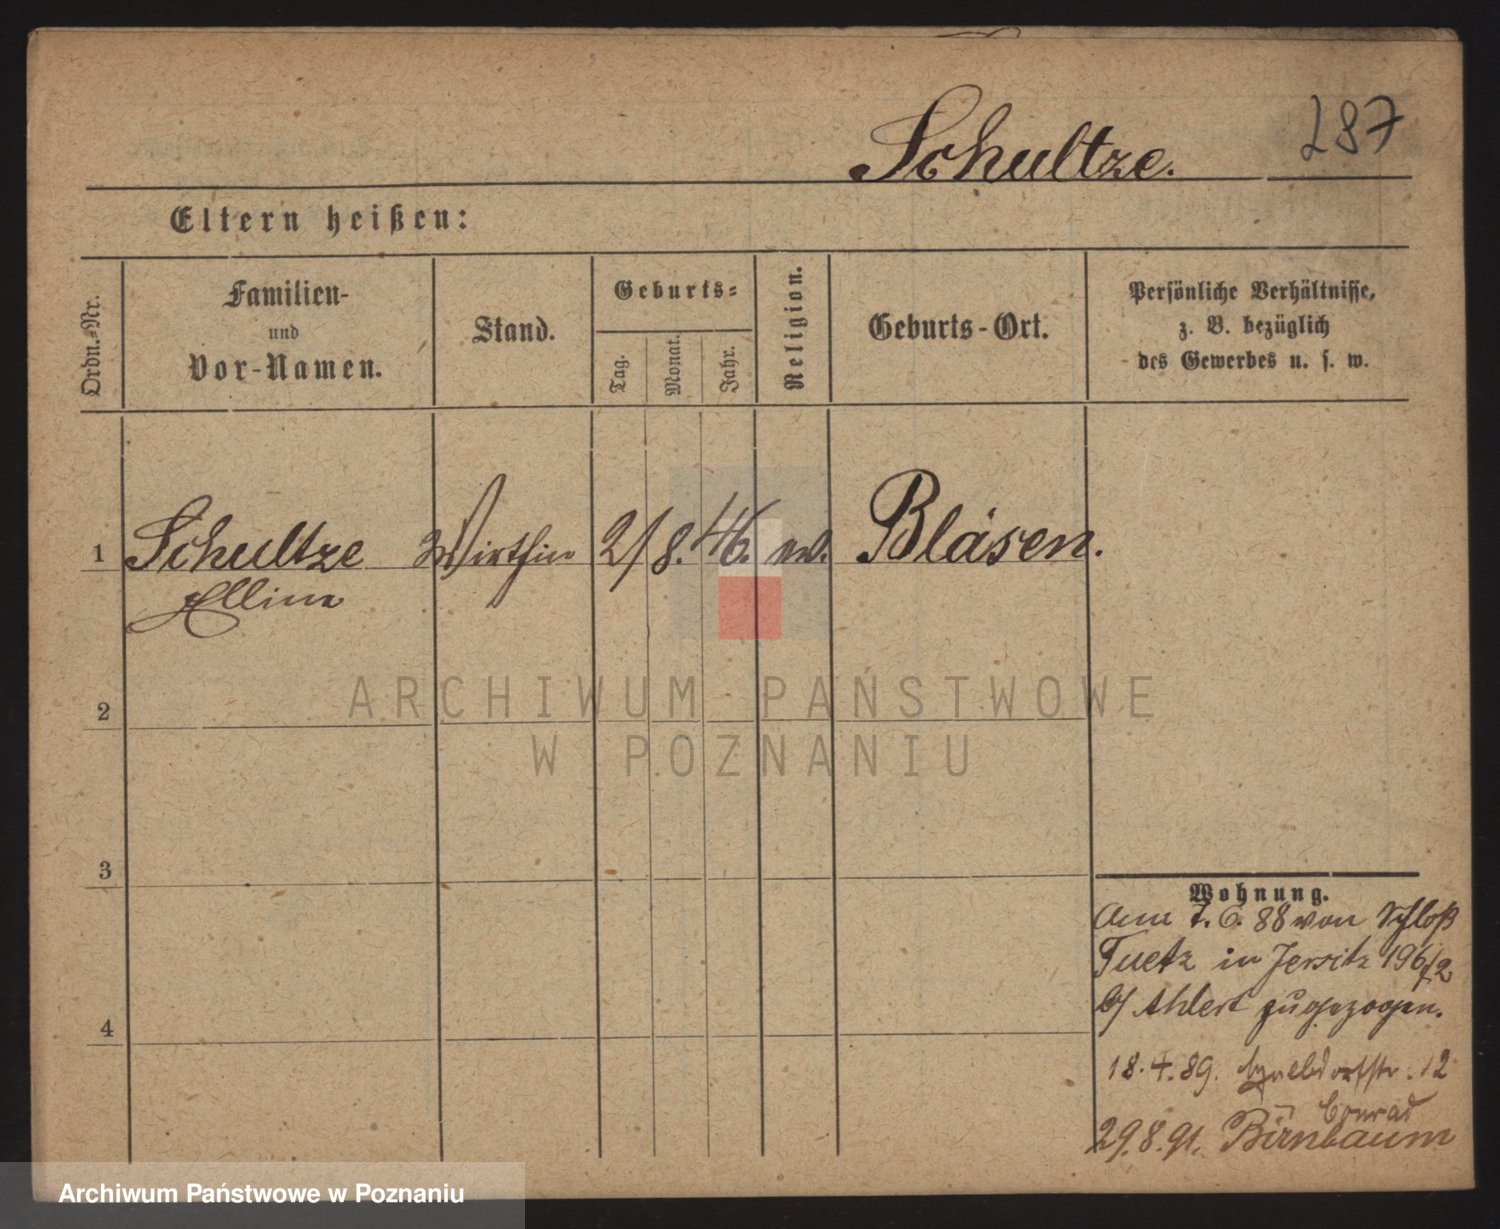 Schultze. 287
Eltern heißen:
Ordn.-Nr.
Familien-
und
Vor-Namen.
Stand.
Geburts-
Tag.
Monat.
Jahr.
Religion.
Geburts-Ort.
Persönliche Verhältnisse,
z. B. bezüglich
des Gewerbes u. s. w.
1 Schultze Wirthin 2/ 8. 46. ev. Bläsen.
2
3
4
ARCHIWUM PAŃSTWOWE
W POZNANIU
Wohnung.
Am 7. 6. 88 von Schloß
Tuetz in Jersitz 196/2
b/ Ahlert zugezogen.
18.4.89. 12
Conrad
29.8.91. Birnbaum
Archiwum Państwowe w Poznaniu